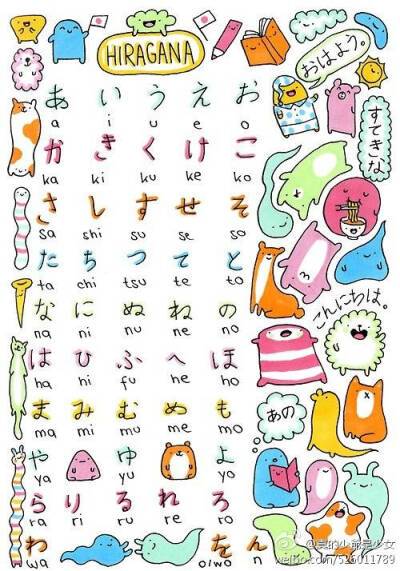 HIRAGANA
おはよう。
すてきな
あ い う え お
a i u e o
か き く け こ
ka ki ku ke ko
さ し す せ そ
sa shi su se so
た ち つ て と
ta chi tsu te to
な に ぬ ね の
na ni nu ne no
こんにちは。
は ひ ふ へ ほ
ha hi fu he ho
ま み む め も
ma mi mu me mo
あの
や ゆ よ
ya yu yo
ら り る れ ろ
ra ri ru re ro
わ を ん
wa o/wo n
weibo.com/526011789